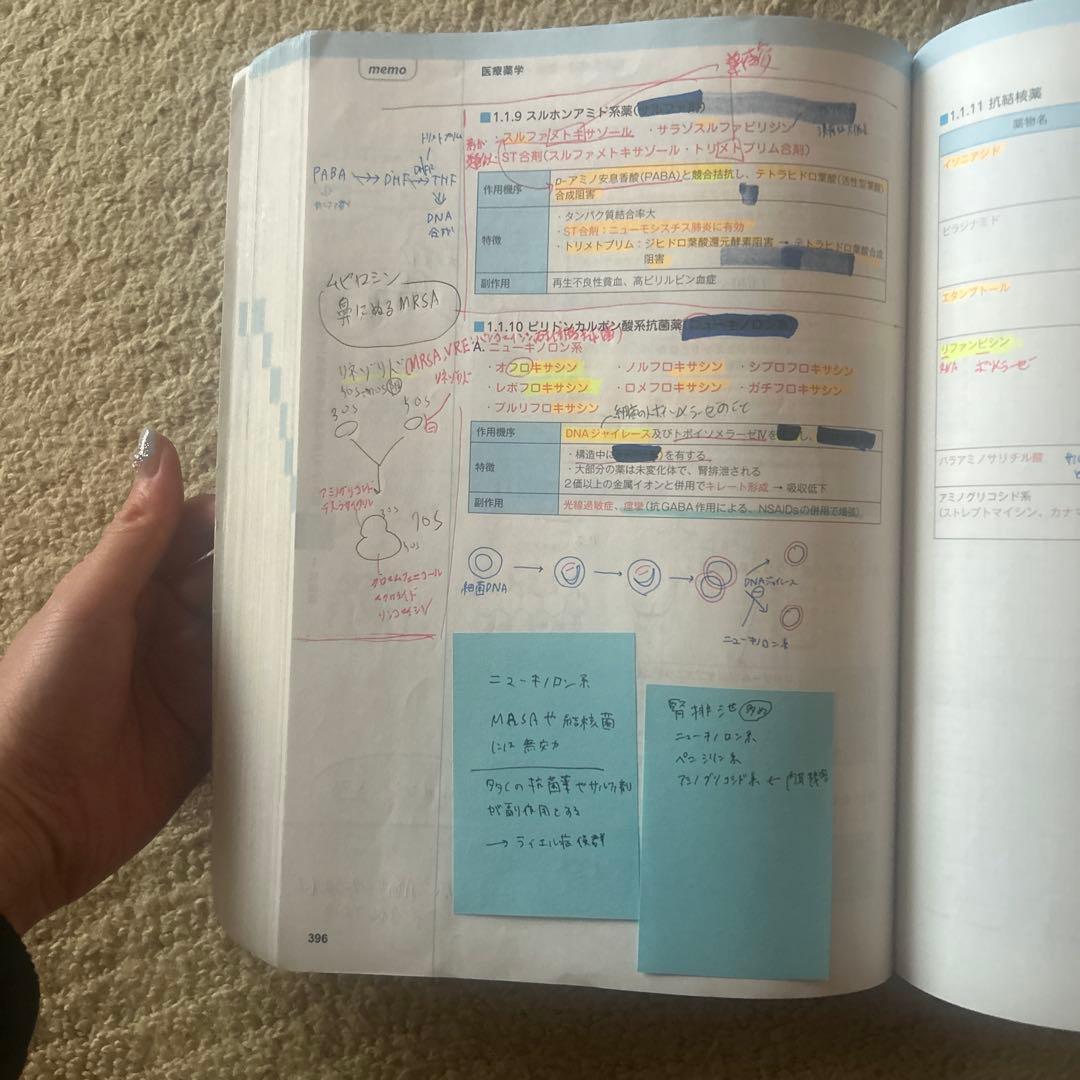 memo
医療薬学
■1.1.9 スルホンアミド系薬(
・スルファメトキサゾール ・サラゾスルファピリジン
・ST合剤(スルファメトキサゾール・トリメトプリム合剤)
作用機序
p-アミノ安息香酸(PABA)と競合拮抗し、テトラヒドロ葉酸(活性型葉酸)
合成阻害
特徴
・タンパク質結合率大
・ST合剤:ニューモシスチス肺炎に有効
・トリメトプリム:ジヒドロ葉酸還元酵素阻害 → テトラヒドロ葉酸合成
阻害
副作用
再生不良性貧血、高ビリルビン血症
トリメトプリム
PABA → DHF → THF
DNA
合成
ムピロシン
鼻にぬるMRSA
■1.1.10 ピリドンカルボン酸系抗菌薬(ニューキノロン系)
A. ニューキノロン系
・オフロキサシン ・ノルフロキサシン ・シプロフロキサシン
・レボフロキサシン ・ロメフロキサシン ・ガチフロキサシン
・プルリフロキサシン
作用機序
DNAジャイレース及びトポイソメラーゼⅣを
特徴
・構造中に
を有する
・大部分の薬は未変化体で、腎排泄される
2価以上の金属イオンと併用でキレート形成 → 吸収低下
副作用
光線過敏症、痙攣(抗GABA作用による、NSAIDsの併用で増強)
リネゾリド(MRSA、VRE:
リネゾリド
30S
50S
アミノグリコシド
テトラサイクリン
30S
70S
50S
クロラムフェニコール
マクロライド
リンコマイシン
細菌DNA
DNAジャイレース
ニューキノロン系
ニューキノロン系
MRSAや結核菌
には無効
多くの抗菌薬やサルファ剤
が副作用とする
→ ライエル症候群
腎排泄
ニューキノロン系
ペニシリン系
アミノグリコシド系 ←
396
■1.1.11 抗結核薬
薬物名
イソニアジド
ピラジナミド
エタンブトール
リファンピシン
RNA ポリメラーゼ
パラアミノサリチル酸
アミノグリコシド系
(ストレプトマイシン、カナマ